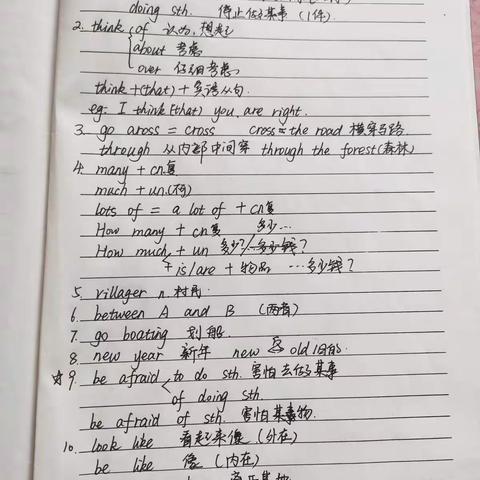 doing sth. 停止做某事 (1件)
2. think of 认为, 想起
about 考虑
over 仔细考虑
think + (that) + 宾语从句.
eg: I think (that) you are right.
3. go aross = cross cross the road 横穿马路
through 从内部中间穿 through the forest (森林)
4. many + cn复
much + un.(不可)
lots of = a lot of + cn复
How many + cn复 多少...
How much + un 多少?/...多少钱?
+ is/are + 物品 ...多少钱?
5. villager n. 村民.
6. between A and B (两者)
7. go boating 划船.
8. new year 新年 new 反 old 旧的.
☆9. be afraid to do sth. 害怕去做某事
of doing sth.
be afraid of sth. 害怕某事物.
10. look like 看起来像 (外在)
be like 像 (内在)